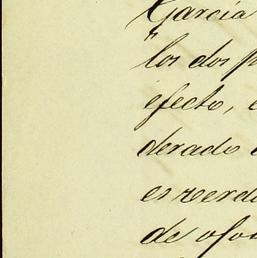 García
los dos p
efecto, e
derado
es verda
de ofo